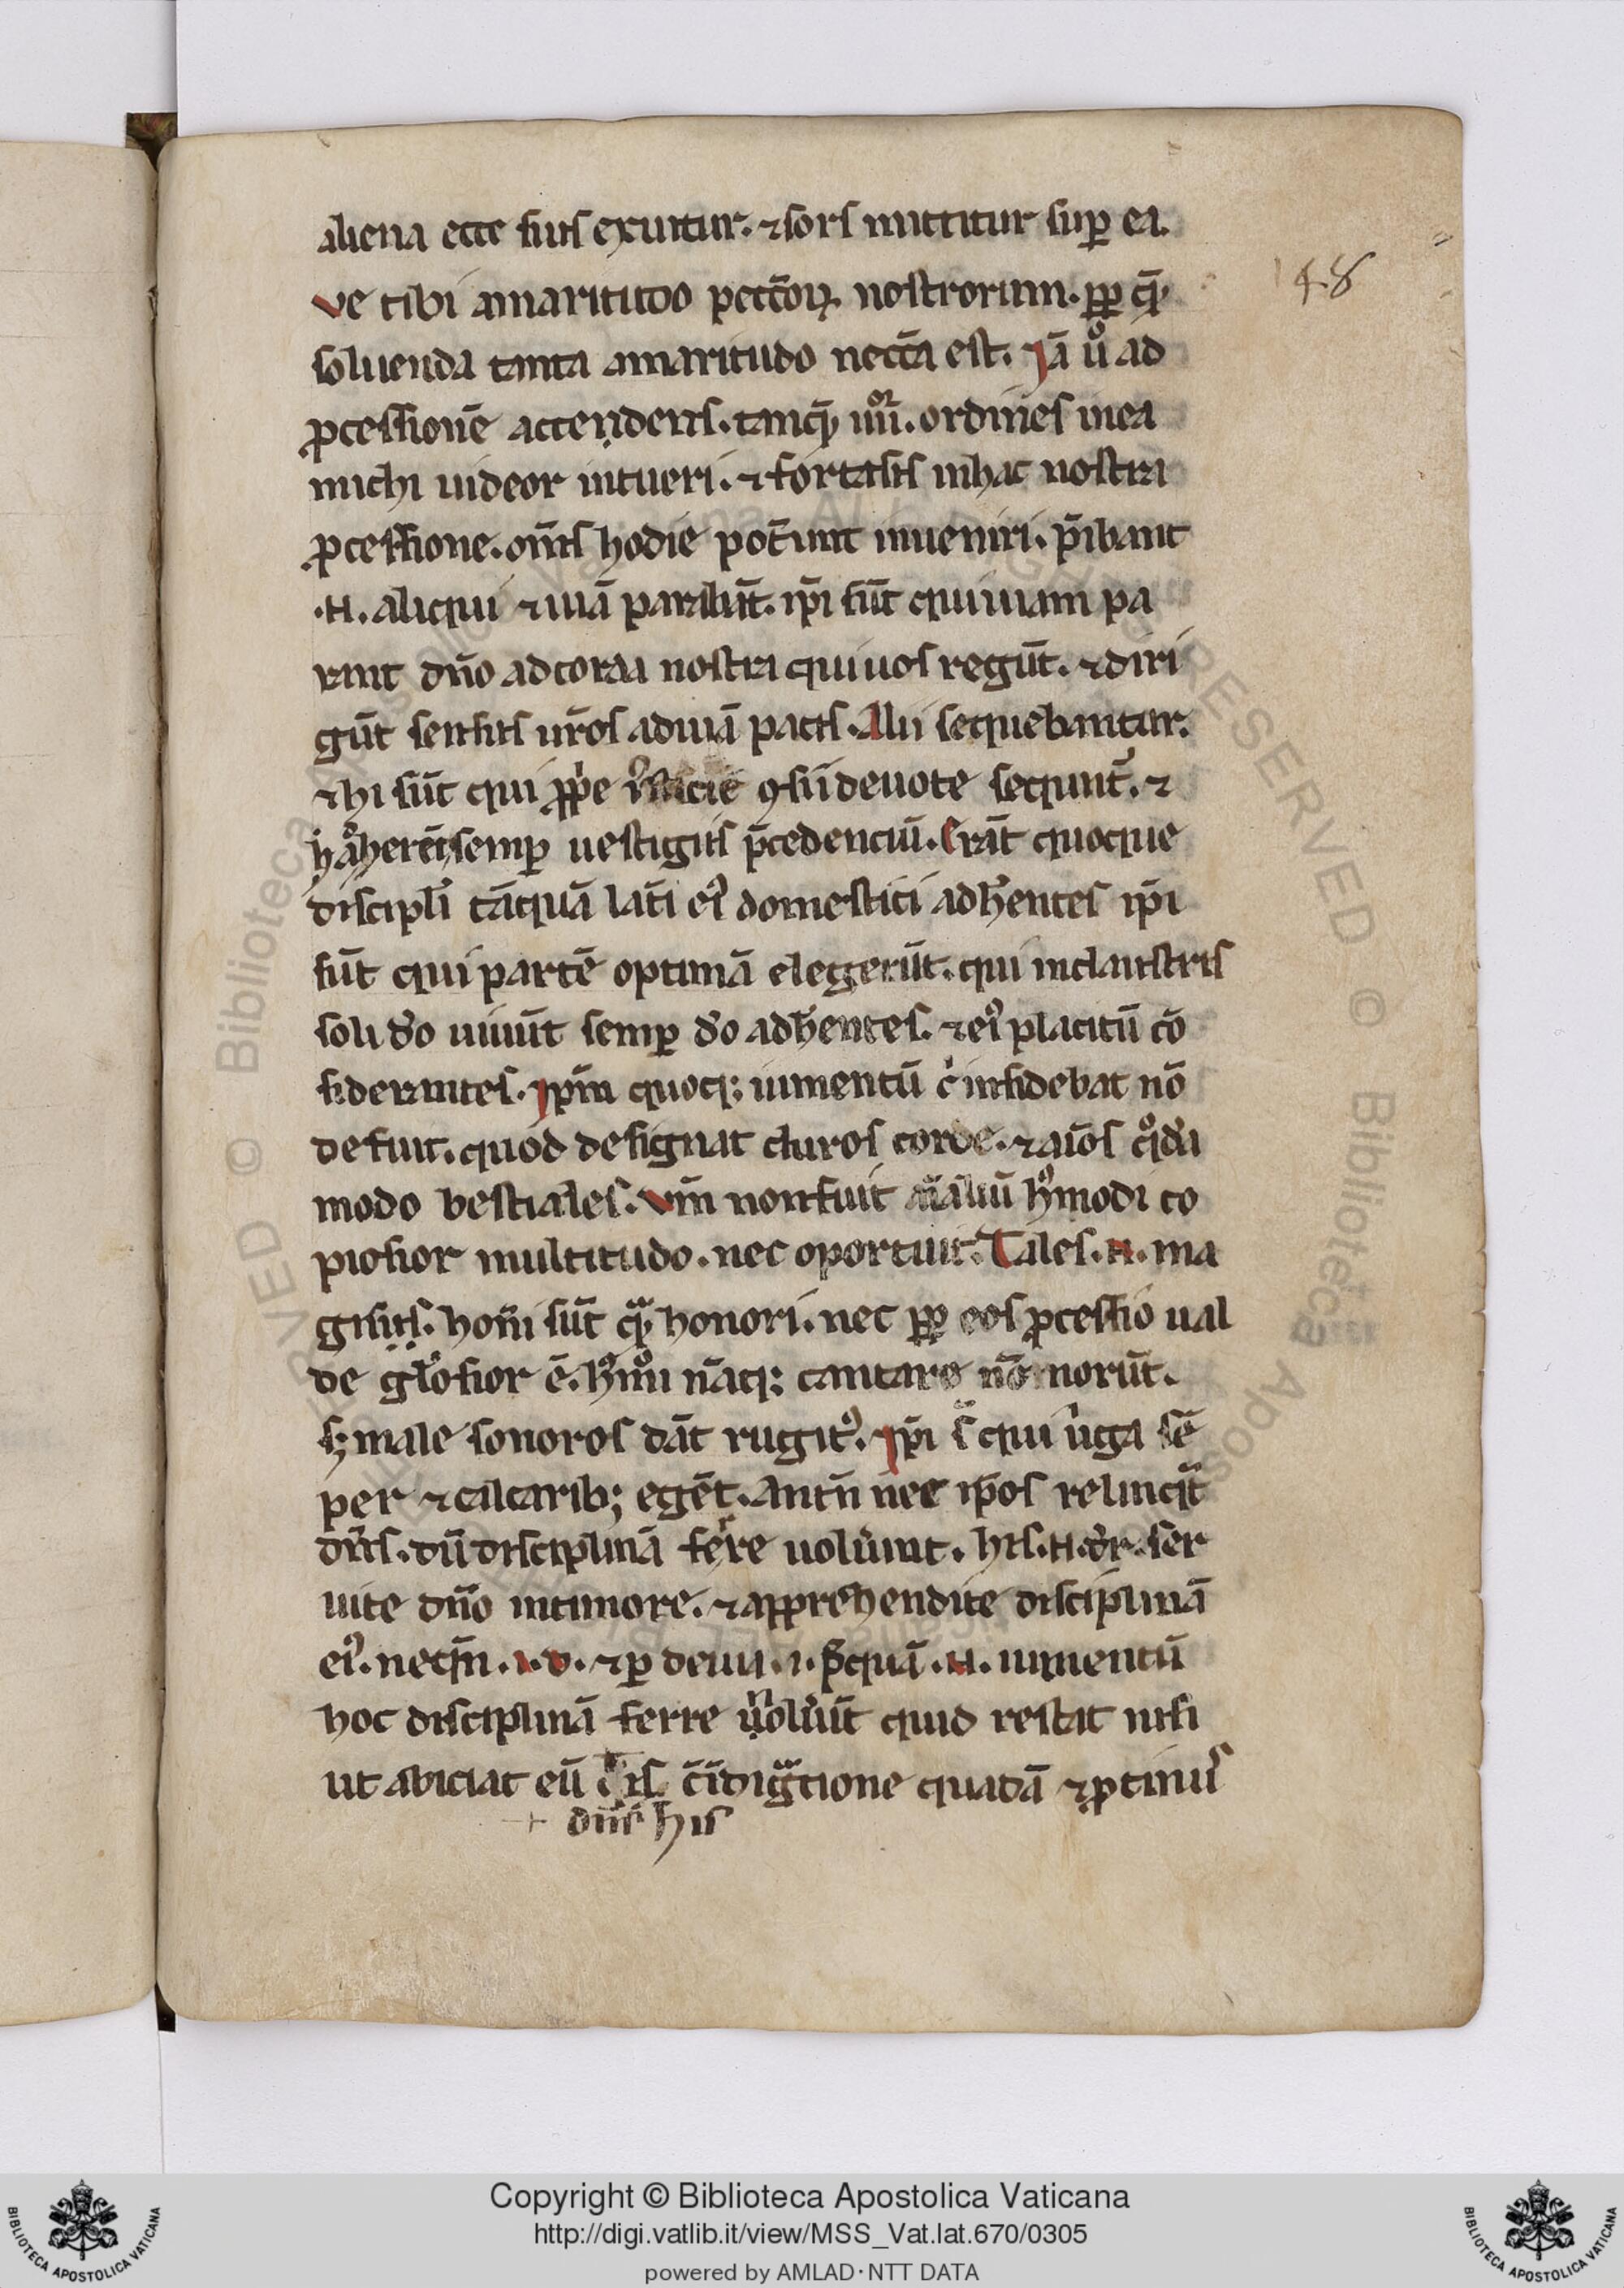 aliena ecce suis exuitur. ⁊ sors mittitur suꝑ ea.
Ve tibi amaritudo pecc̄oꝝ nostrorum. ꝓpꝑ q̄
soluenda tanta amaritudo necc̄a est. Jā ůo ad
ꝓcessionē attendens. tanq̄ iiiior. ordines in ea
michi uideor intueri. ⁊ fortassis in hac nostra
ꝓcessione. om̄s hodie pot̄unt inueniri. p̄ibant
.n. aliqui ⁊ uiā parabāt. ip̄i sūt qui uiam pa
rant dn̄o ad corda nostra qui uos regūt. ⁊ diri
gūt sensus ur̄os ad uiā pacis. Alii sequebantur.
⁊ hi sūt qui ꝓp̄e sui devote sequunt̄. ⁊
adherēt semꝑ uestigiis p̄cedenciū. Erāt quoque
discipl̄i tāquā lat̄i ei᷒ domestici adh̄entes ip̄i
sūt qui partē optimā elegerūt. qui in claustris
soli d̄o uiuūt semꝑ d̄o adh̄entes. ⁊ ei᷒ placitū cō
siderantes. Jpm̄ quoq; iumentū c̄ insidebat nō
defuit. quod designat duros corde. ⁊ aīos q̊da
modo bestiales. Vm̄ non fuit aīaliū h᷒modi co
piosior multitudo. nec oportuit. Tales .n. ma
gis honi sūt quā honori. nec ꝓpꝑ eos ꝓcessio ual
de gl̄osior ē. h᷒mōi nāq; cantare nō norūt.
s; male sonoros dāt rugit᷒. Jp̄i s̄ qui ůga sē
per ⁊ calcarib; egēt. Attn̄ nec ip̄os relinqͣt
dn̄s. dū disciplinā ferre uoluerint. his .n. dr̄. ser
uite dn̄o in timore. ⁊ apprehendite disciplinā
ei᷒. neqn̄. i. d. ⁊ ꝑ de uia. i. p᷒quā .n. iumentū
hoc disciplinā ferre noluerūt quid restat nisi
ut abiciat eū c̄ īdigͣtione quadā ⁊ ꝓtinus
+ dn̄s his
48
Copyright © Biblioteca Apostolica Vaticana
http://digi.vatlib.it/view/MSS_Vat.lat.670/0305
powered by AMLAD·NTT DATA
BIBLIOTECA APOSTOLICA VATICANA
BIBLIOTECA APOSTOLICA VATICANA